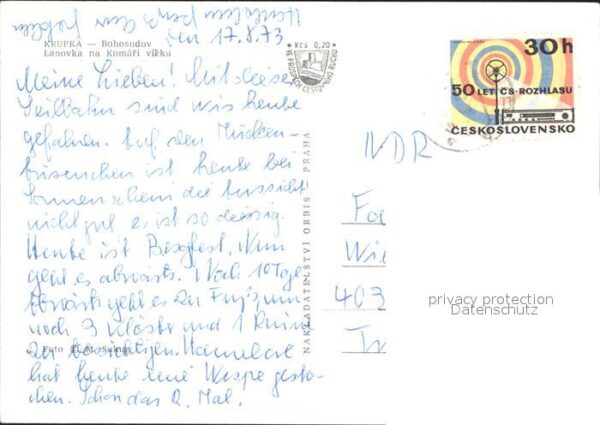 den 17.8.73
KRUPKA — Bohosudov
Lanovka na Komáří vížku
Meine Lieben! Mit dieser
Seilbahn sind wir heute
gefahren. Auf dem Mücken-
türmchen ist heute bei
Sonnenschein die Aussicht
nicht gut es ist so diesig.
Heute ist Bergfest. Nun
geht es abwärts. Noch 10 Tage
geht es zu Fuß, um
noch 3 Klöster und 1 Ruine
zu besichtigen. Hannelore
hat heute eine Wespe gesto-
chen. Schon das 2. Mal.
Foto
NAKLADATELSTVÍ ORBIS — PRAHA
Kčs 0,20
30h
50 LET ČS. ROZHLASU
ČESKOSLOVENSKO
NDR
Fa
Wi
403
privacy protection
Datenschutz